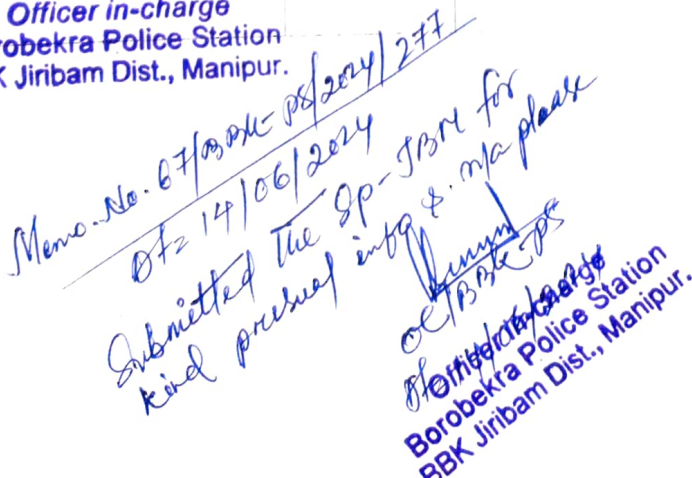 Officer in-charge
robekra Police Station
K Jiribam Dist., Manipur.
Memo. No. 67/BBK-PS/2024/277
Dt= 14/06/2024
Submitted The Sp-JBM for
kind prusual info & n/a please
OC/BBK-PS
Officer in-charge
Borobekra Police Station
BBK Jiribam Dist., Manipur.